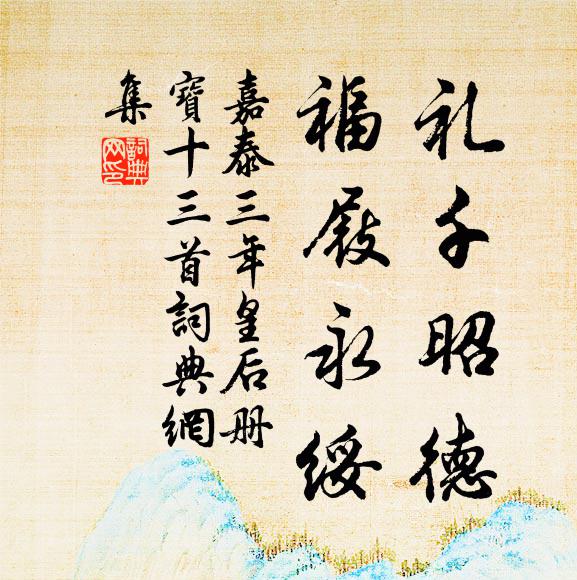 礼千昭德
福殿永綏
嘉泰三年皇后册
寶十三首詞典網
集
詞典
网印